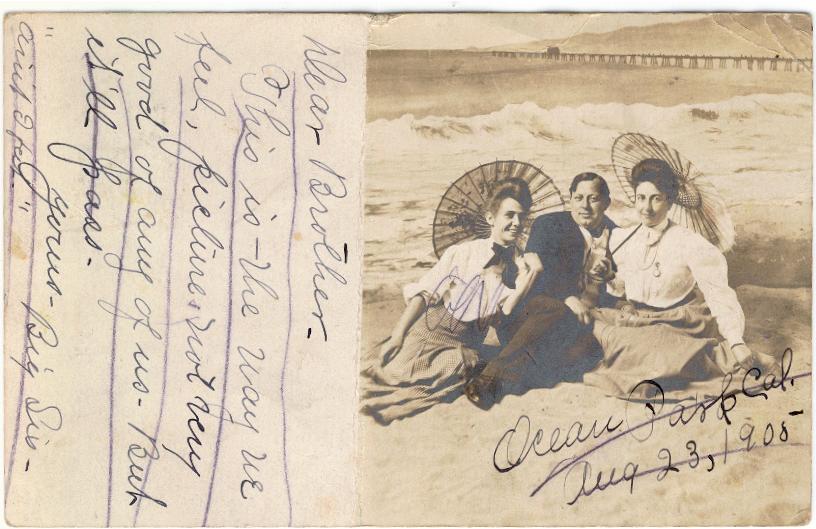 Dear Brother-
This is the way we
feel, picture, not very
good of any of us- But
it'll pass-
yours- Big Sis-
"aint I fat."
Ocean Park Cal.
Aug 23, 1905